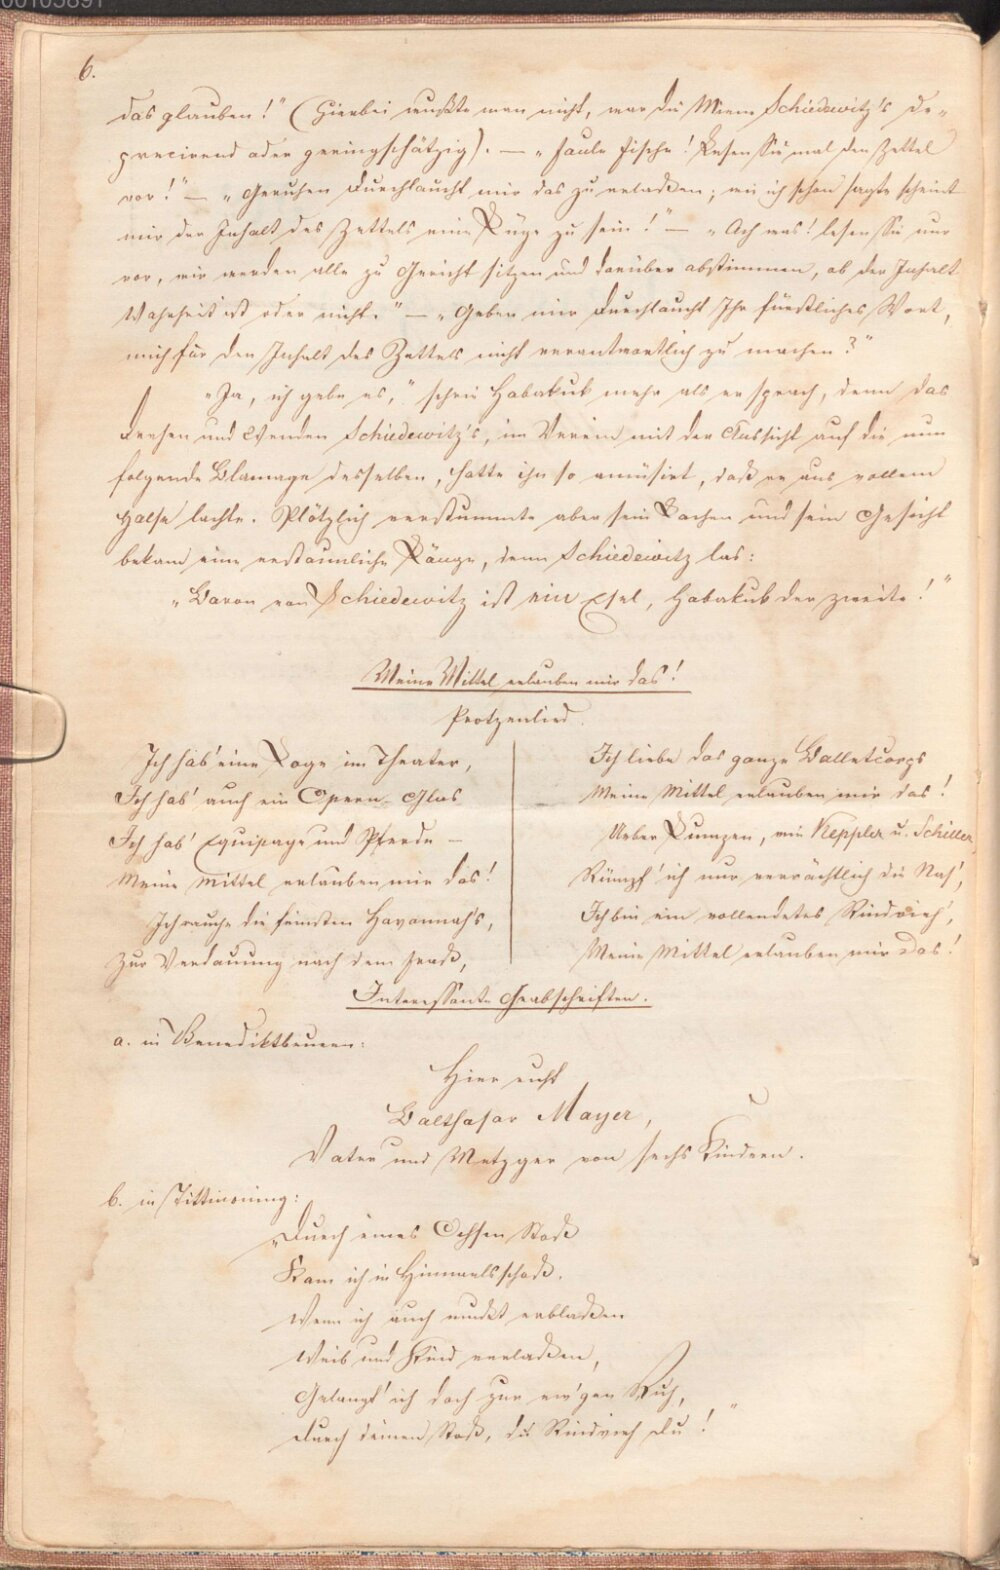 00105891
6.
das glauben!" (Hierbei wußte man nicht, war die Miene Schiedewitz's de-
precirend oder geringschätzig). — „Faule Fische! Lesen Sie mal den Zettel
vor!" — „Geruhen Durchlaucht mir das zu erlaßen; wie ich schon sagte scheint
mir der Inhalt des Zettels eine Rüge zu sein!" — „Ach was! lesen Sie nur
vor, wir werden alle zu Gericht sitzen und darüber abstimmen, ob der Inhalt
Wahrheit ist oder nicht." — „Geben mir Durchlaucht Ihr fürstliches Wort,
mich für den Inhalt des Zettels nicht verantwortlich zu machen?"
„Ja, ich gebe es," schrie Habakuk mehr als er sprach, denn das
Drehen und Wenden Schiedewitz's, im Verein mit der Aussicht auf die nun
folgende Blamage desselben, hatte ihn so amüsirt, daß er aus vollem
Halse lachte. Plötzlich verstummte aber sein Lachen und sein Gesicht
bekam eine erstaunliche Länge, denn Schiedewitz las:
„Baron von Schiedewitz ist ein Esel, Habakuk der zweite!"
Meine Mittel erlauben mir das!
Protzenlied.
Ich hab' eine Loge im Theater,
Ich hab' auch ein Opern-Glas
Ich hab' Equipage und Pferde —
Meine Mittel erlauben mir das!
Ich rauche die feinsten Havannah's,
Zur Verdauung nach dem Fraß,
Ich liebe das ganze Balletcorps
Meine Mittel erlauben mir das!
Ueber Lumpen, wie Keppler u. Schiller
Rümpf' ich nur verächtlich die Nas',
Ich bin ein vollendetes Rindvieh,
Meine Mittel erlauben mir das!
Interessante Grabschriften.
a. in Benediktbeuern:
Hier ruht
Balthasar Mayer,
Vater und Metzger von sechs Kindern.
b. in Tittmoning:
„Durch eines Ochsen Stoß
Kam ich in Himmelsschoß.
Wenn ich auch mußt erblaßen
Weib und Kind verlaßen,
Gelangt' ich doch zur ew'gen Ruh,
Durch deinen Stoß, du Rindvieh du!"